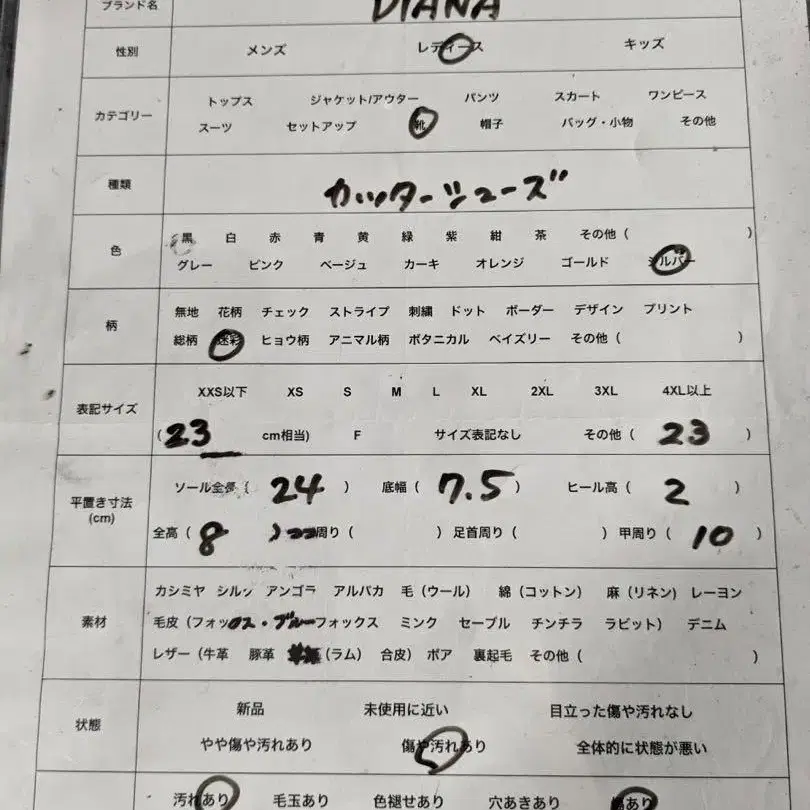 ブランド名 DIANA
性別 メンズ レディース キッズ
カテゴリー トップス ジャケット/アウター パンツ スカート ワンピース
スーツ セットアップ 靴 帽子 バッグ・小物 その他
種類 カッターシューズ
色 黒 白 赤 青 黄 緑 紫 紺 茶 その他 ( )
グレー ピンク ベージュ カーキ オレンジ ゴールド シルバー
柄 無地 花柄 チェック ストライプ 刺繍 ドット ボーダー デザイン プリント
総柄 迷彩 ヒョウ柄 アニマル柄 ボタニカル ペイズリー その他 ( )
表記サイズ XXS以下 XS S M L XL 2XL 3XL 4XL以上
(23 cm相当) F サイズ表記なし その他 ( 23 )
平置き寸法 (cm) ソール全長 ( 24 ) 底幅 ( 7.5 ) ヒール高 ( 2 )
全高 ( 8 ) 周り ( ) 足首周り ( ) 甲周り ( 10 )
素材 カシミヤ シルク アンゴラ アルパカ 毛 (ウール) 綿 (コットン) 麻 (リネン) レーヨン
毛皮 (フォックス・ブルーフォックス ミンク セーブル チンチラ ラビット) デニム
レザー (牛革 豚革 (ラム) 合皮) ボア 裏起毛 その他 ( )
状態 新品 未使用に近い 目立った傷や汚れなし
やや傷や汚れあり 傷や汚れあり 全体的に状態が悪い
汚れあり 毛玉あり 色褪せあり 穴あきあり あり